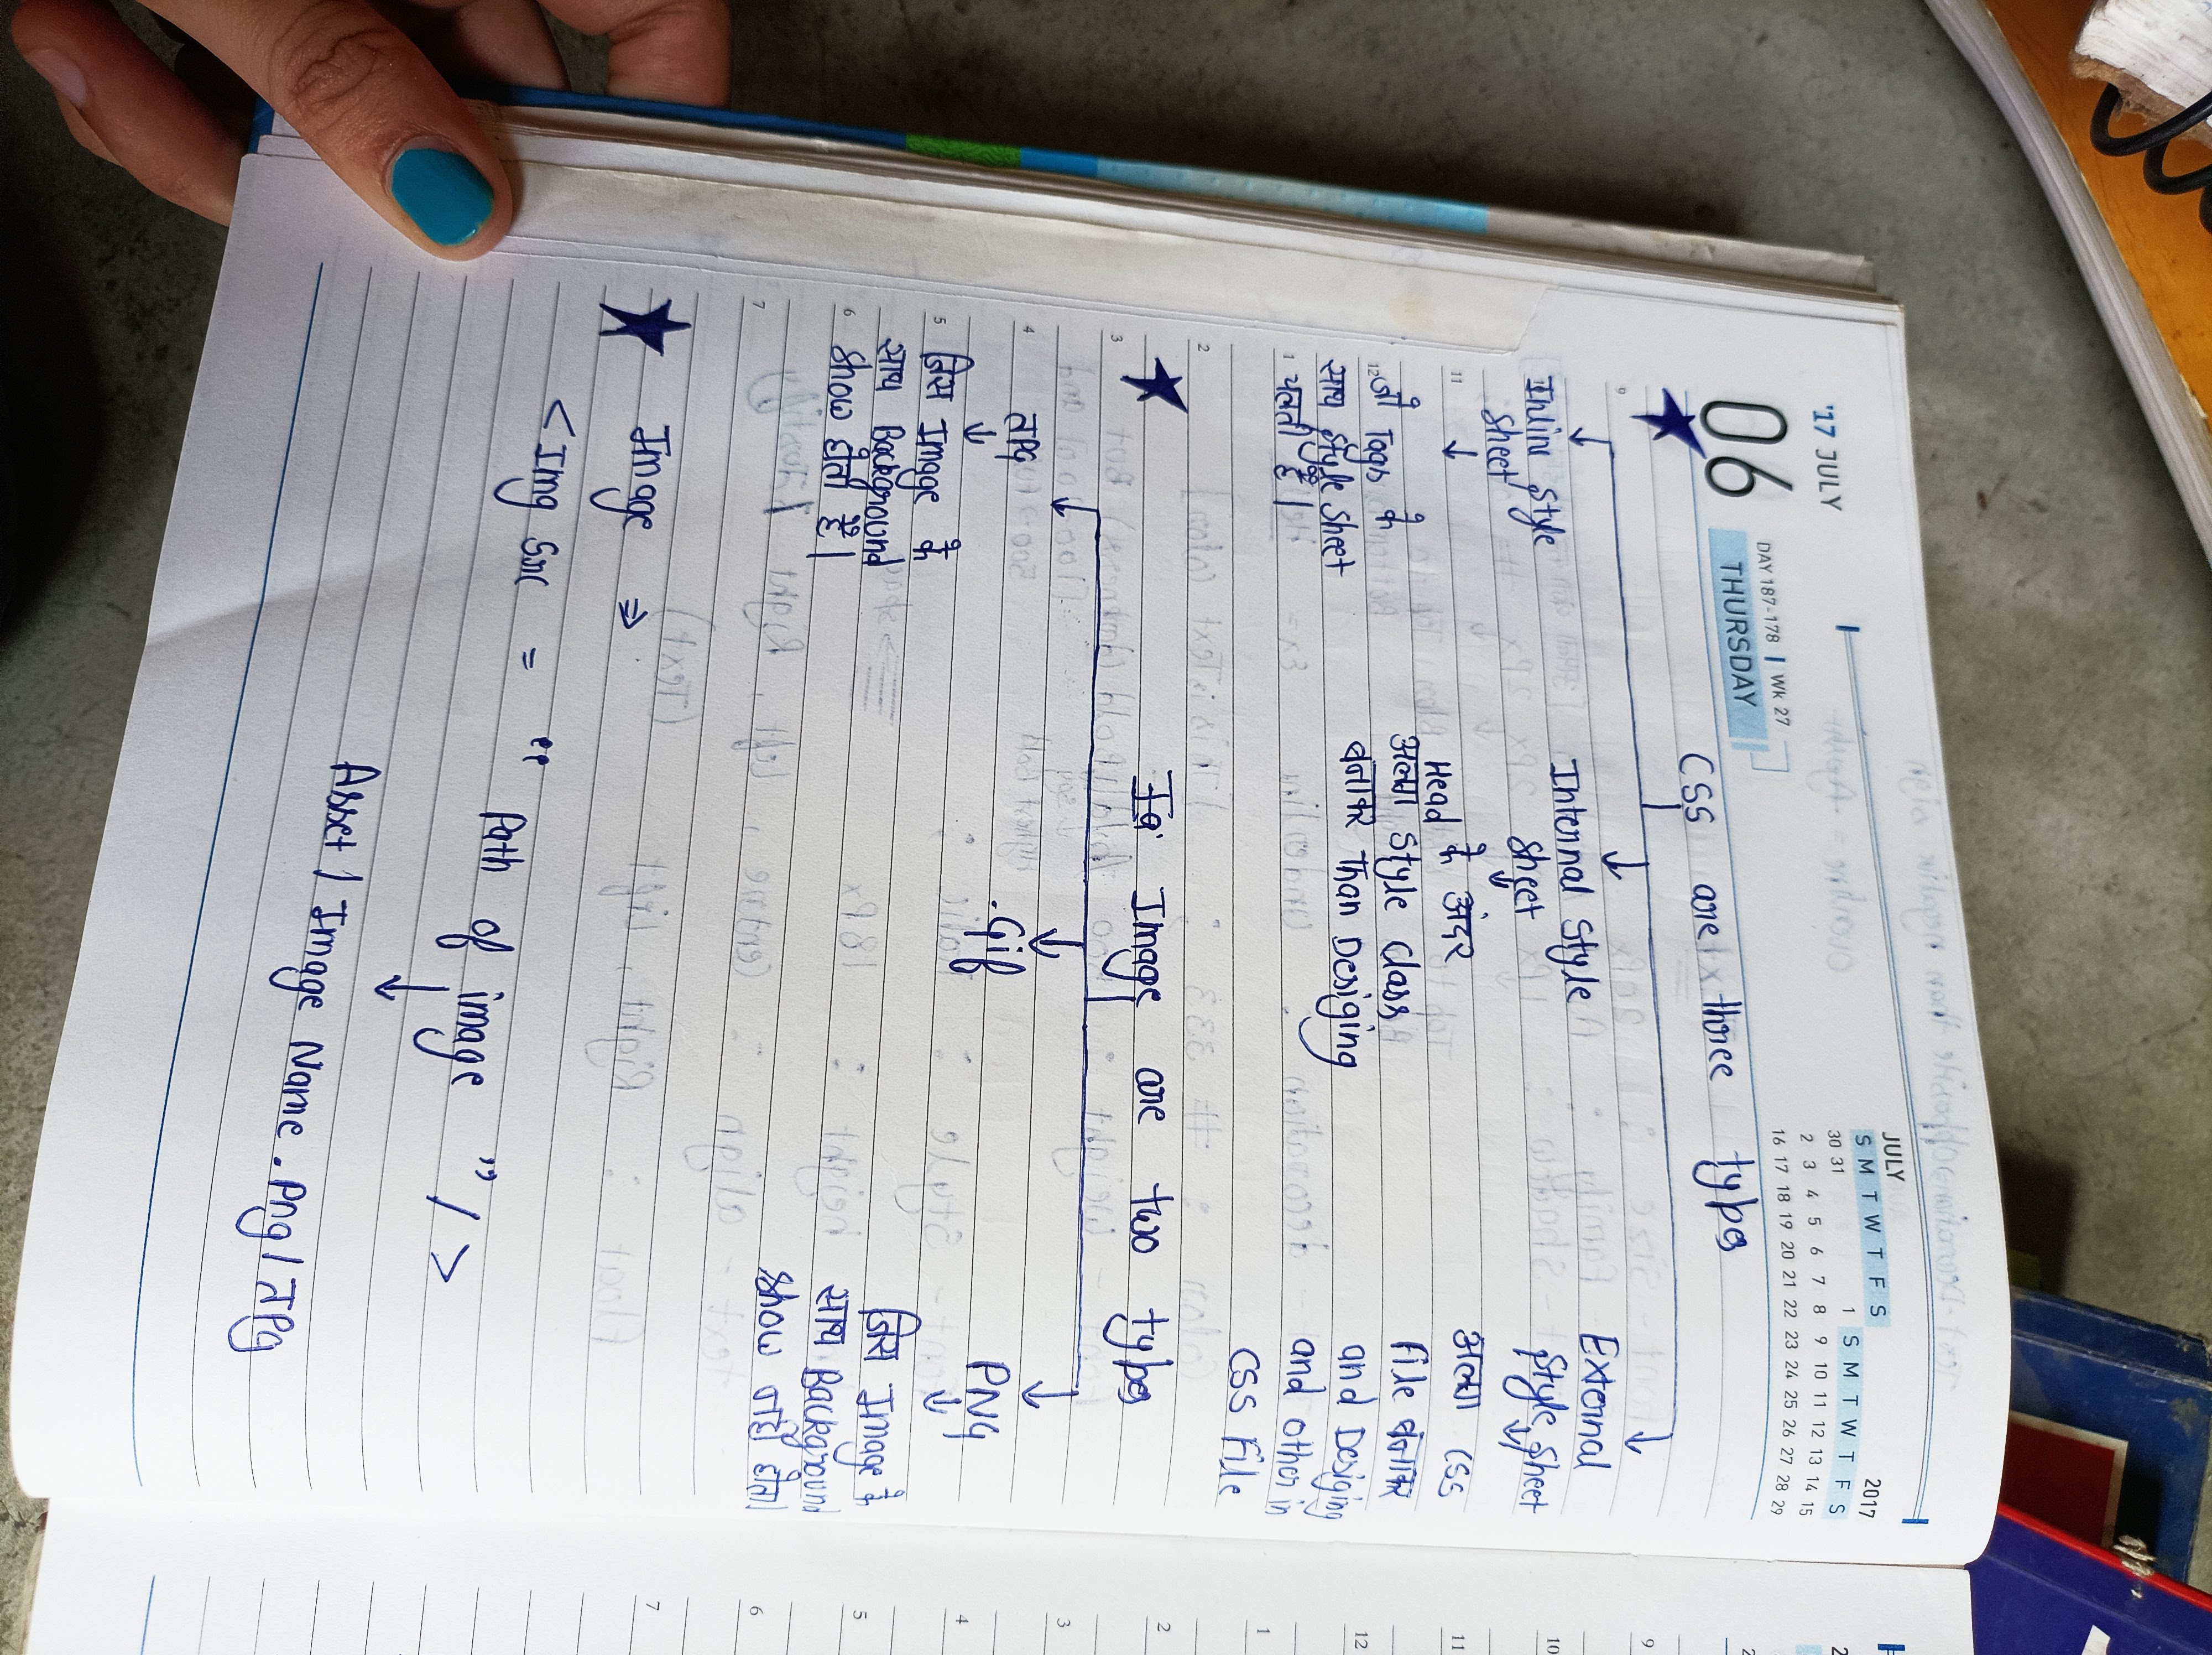 '17 JULY
06
DAY 187-178 | WK 27
THURSDAY
JULY 2017
S M T W T F S S M T W T F S
30 31 1
2 3 4 5 6 7 8 9 10 11 12 13 14 15
16 17 18 19 20 21 22 23 24 25 26 27 28 29
CSS are three types
Inlin Style
Sheet
जो Tags के
साथ Style Sheet
चलती है।
Internal Style
Sheet
Head के अंदर
अलग Style class
बनाकर Than Desiging
External
Style Sheet
अलग CSS
File बनाकर
and Desiging
and other in
CSS File
Image are two types
JPG
जिस Image के
साथ Background
Show होता है।
.Gif
PNG
जिस Image के
साथ Background
Show नही होता
Image ⇒
<Img Src = " Path of image " / >
Asset / Image Name . Png / JPg
9
11
12
1
2
3
4
5
6
7
9
10
11
12
1
2
3
4
5
6
7